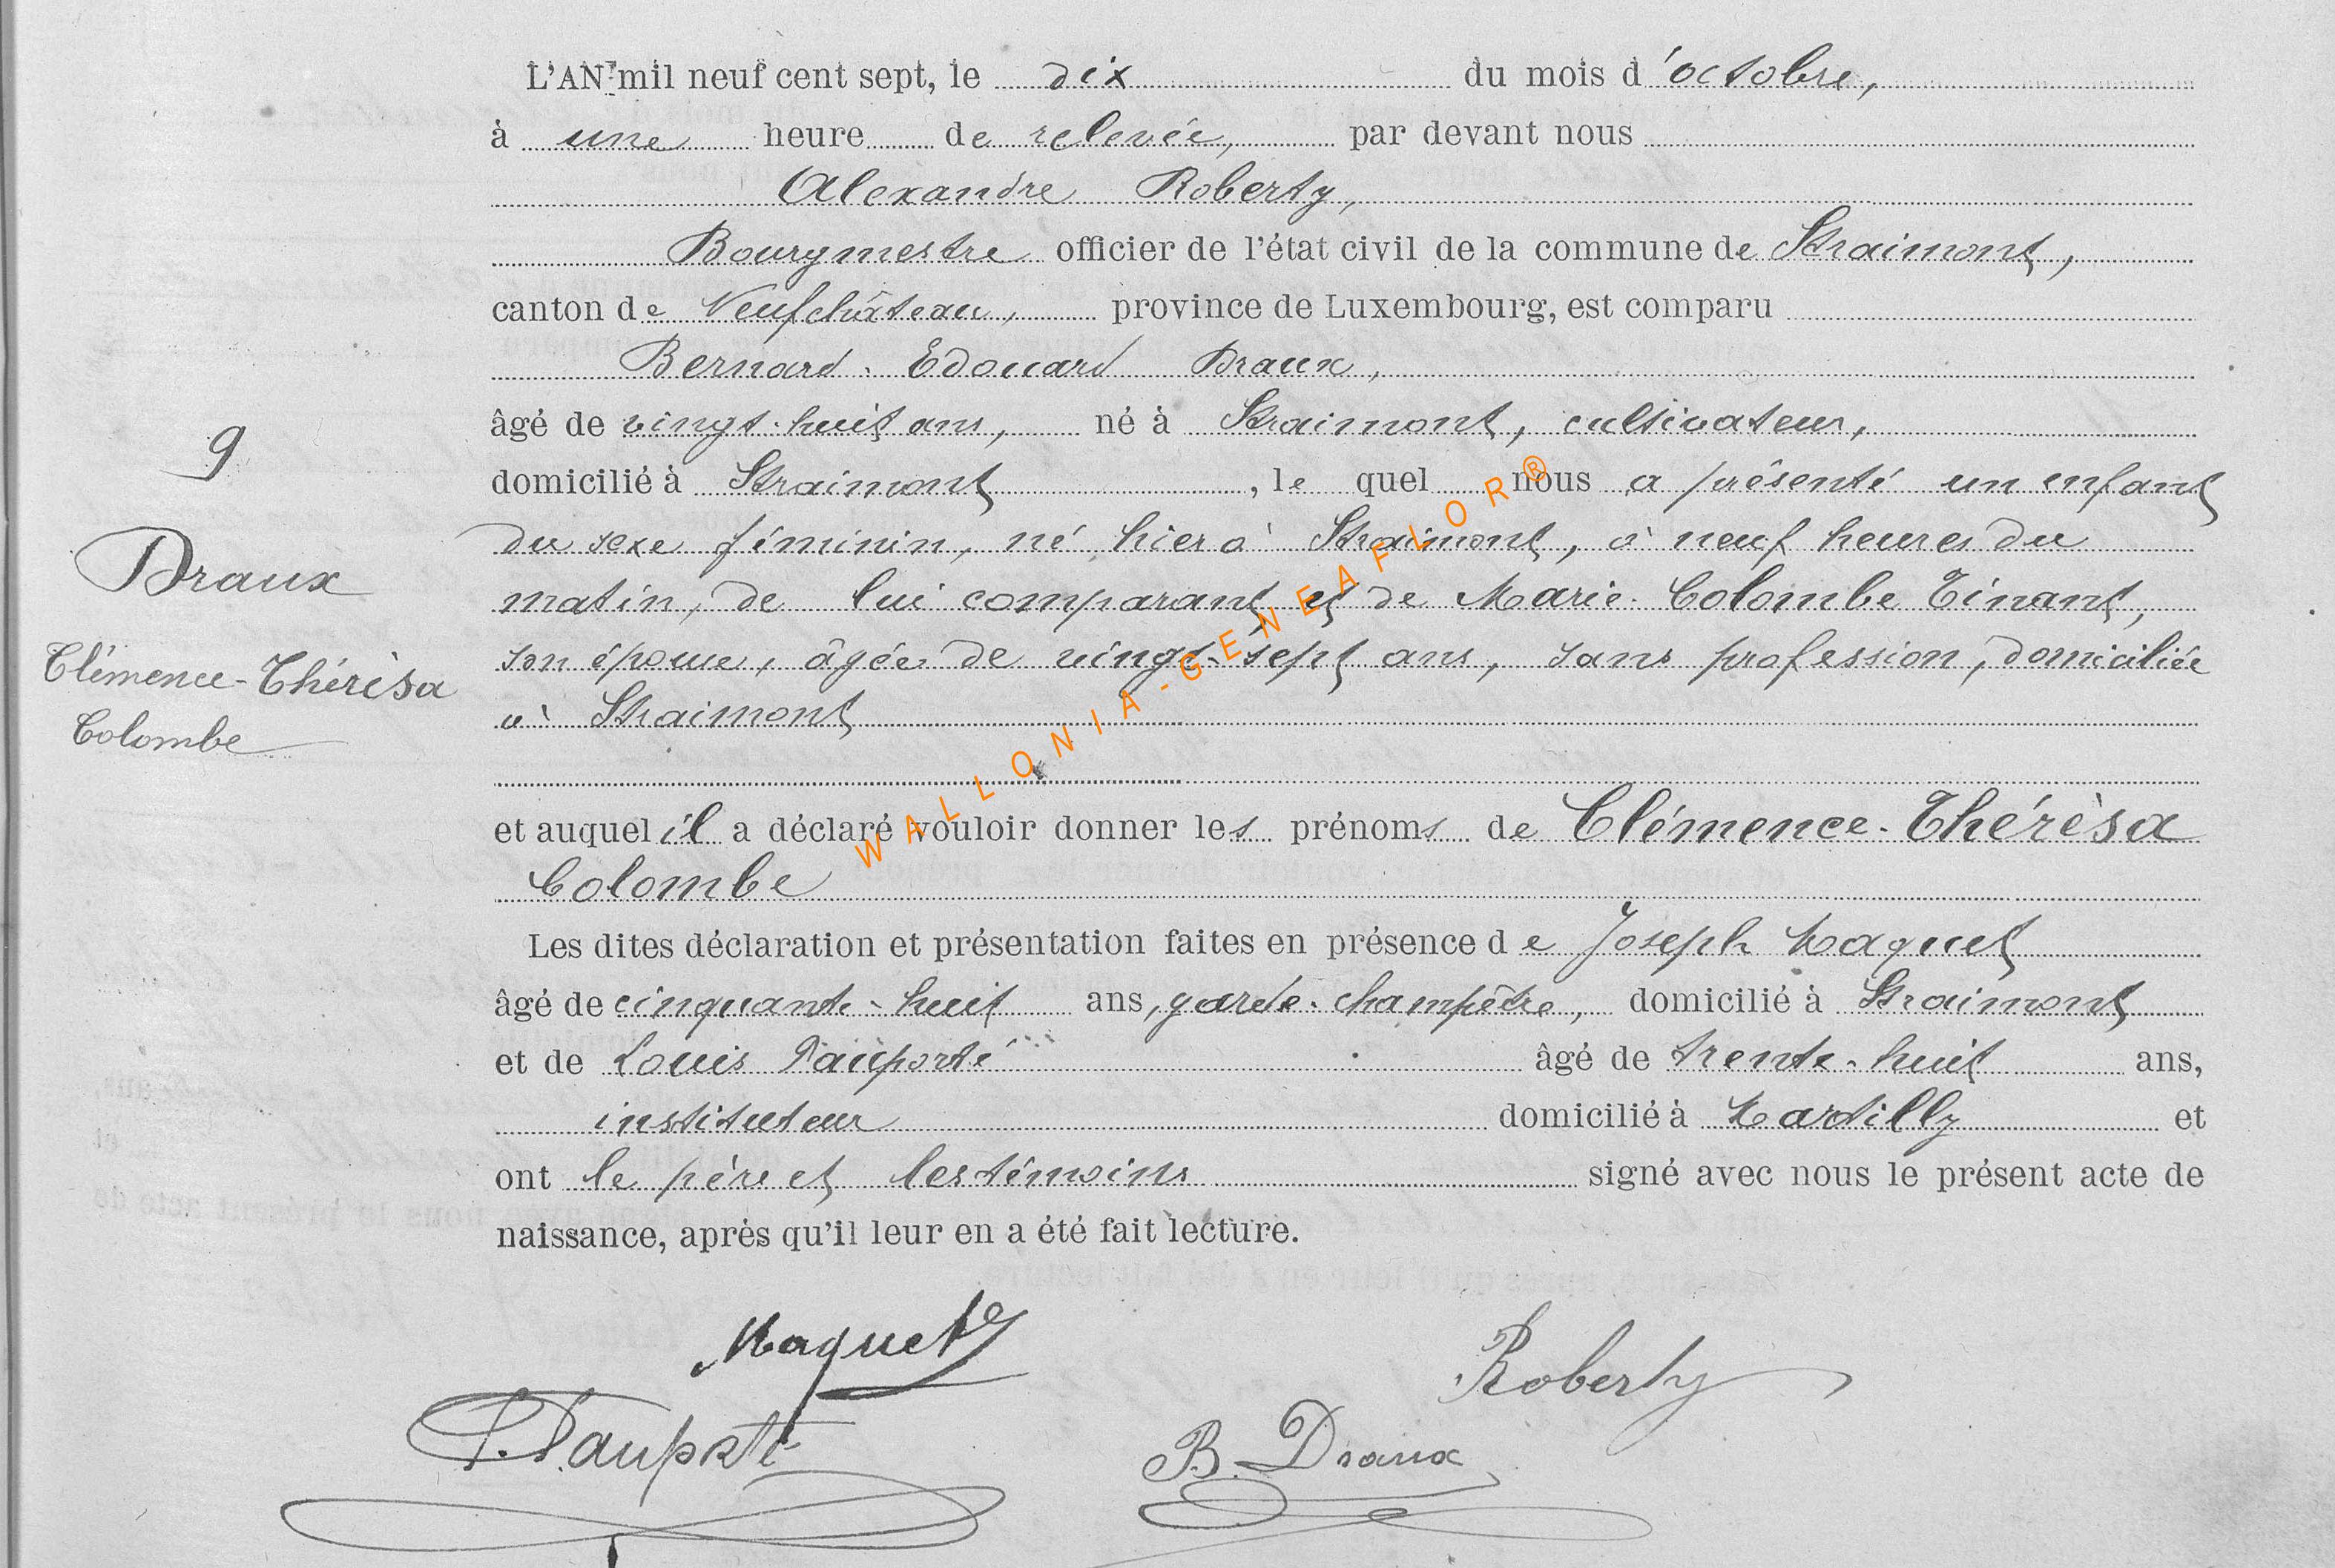 L'AN mil neuf cent sept, le dix du mois d'octobre,
à une heure de relevée, par devant nous
Alexandre Roberty,
Bourgmestre officier de l'état civil de la commune de Straimont,
canton de Neufchâteau, province de Luxembourg, est comparu
Bernard-Edouard Draux,
âgé de vingt-huit ans, né à Straimont, cultivateur,
domicilié à Straimont, le quel nous a présenté un enfant
du sexe féminin, né hier à Straimont, à neuf heures du
matin, de lui comparant et de Marie-Colombe Tinant,
son épouse, âgée de vingt-sept ans, sans profession, domiciliée
à Straimont
et auquel il a déclaré vouloir donner les prénoms de Clémence-Thérèsa
Colombe
Les dites déclaration et présentation faites en présence de Joseph Maquet
âgé de cinquante-huit ans, garde-champêtre, domicilié à Straimont
et de Louis Pauporté âgé de trente-huit ans,
instituteur domicilié à Martilly et
ont le père et les témoins signé avec nous le présent acte de
naissance, après qu'il leur en a été fait lecture.
9
Draux
Clémence-Thérèsa
Colombe
Maquet
Roberty
L. Pauporté
B. Draux
WALLONIA-GENEAFLOR®